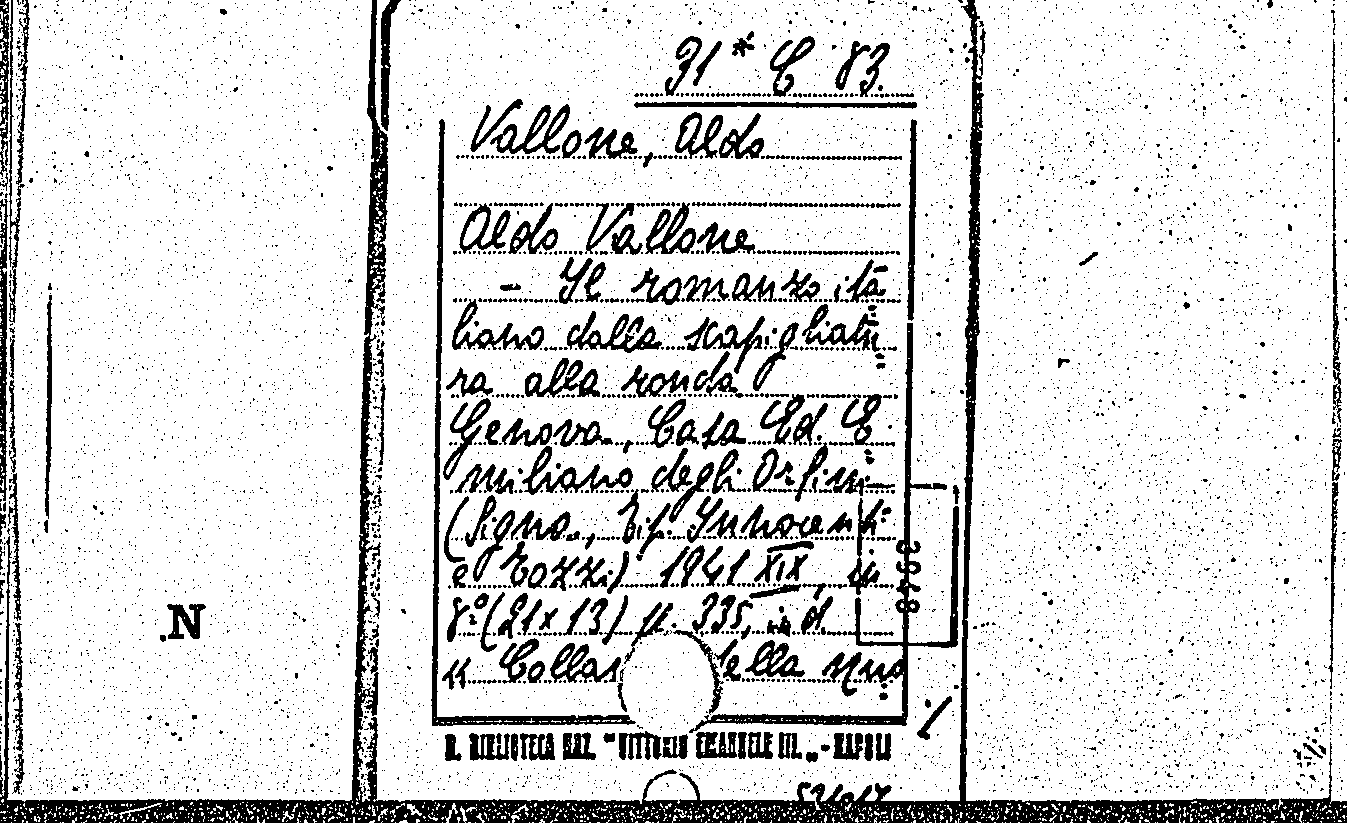 91* C 83.
Vallone, Aldo
Aldo Vallone
- Il romanzo ita
liano dalla scapigliatu
ra alla ronda
Genova, Casa Ed. E
miliano degli Orfini
(Signa, Tip. Innocenti
e Pozzi) 1941 XIX, in
8.° (21x13) p. 335,
" Colla ella nuo
3948
.N
R. BIBLIOTECA NAZ. "VITTORIO EMANUELE III." - NAPOLI